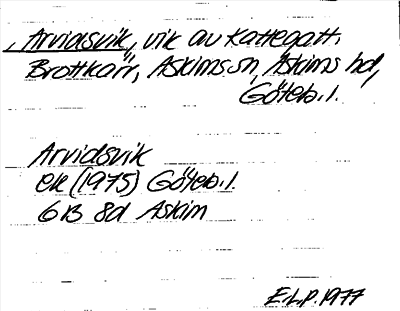 Arvidsvik, vik av Kattegatt.
Brottkärr, Askims sn, Askims hd,
Göteb. l.
Arvidsvik
ek (1975) Göteb. l.
6B 8d Askim
E.L.P. 1977